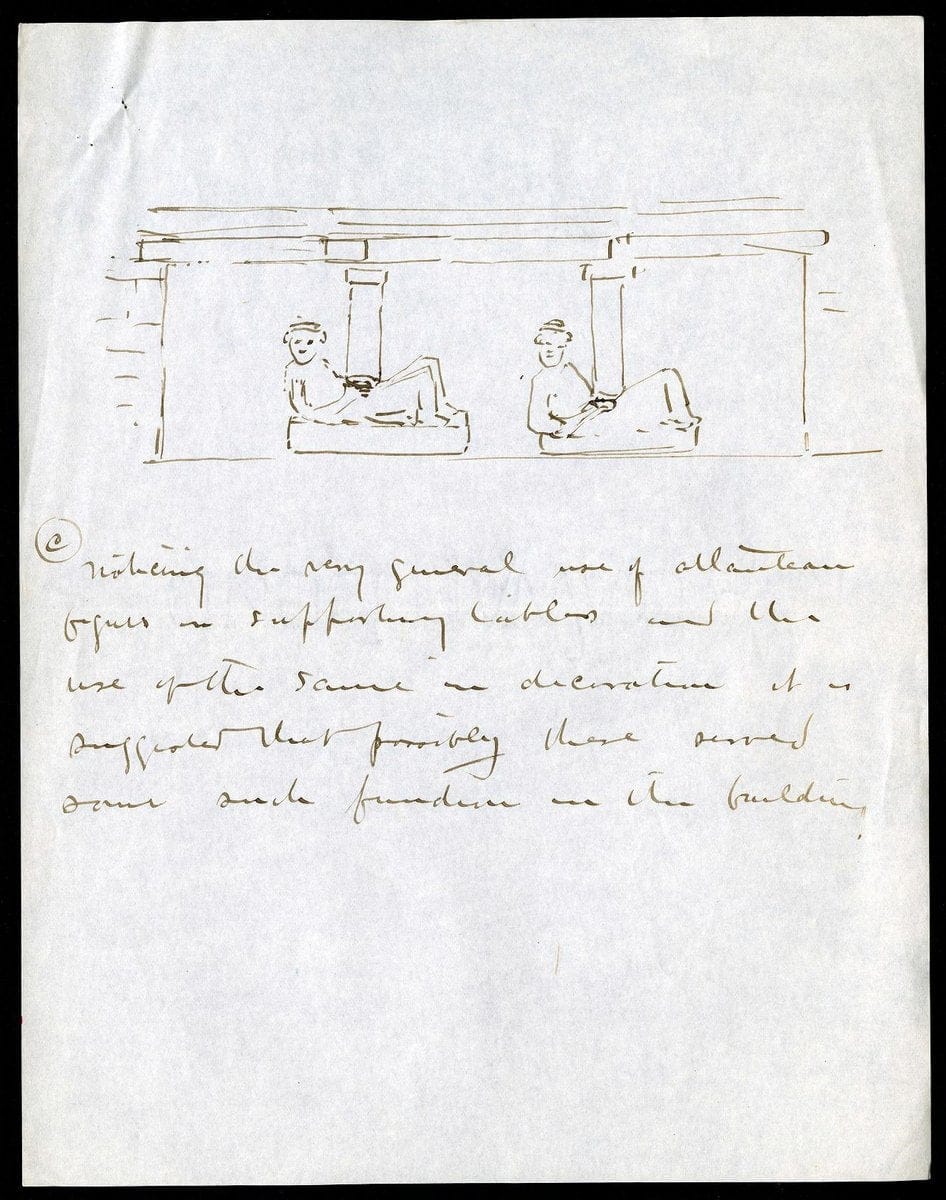 c
noticing the very general use of atlantean
figures in supporting tables and the
use of the same in decoration it is
suggested that possibly these served
some such function in the building.